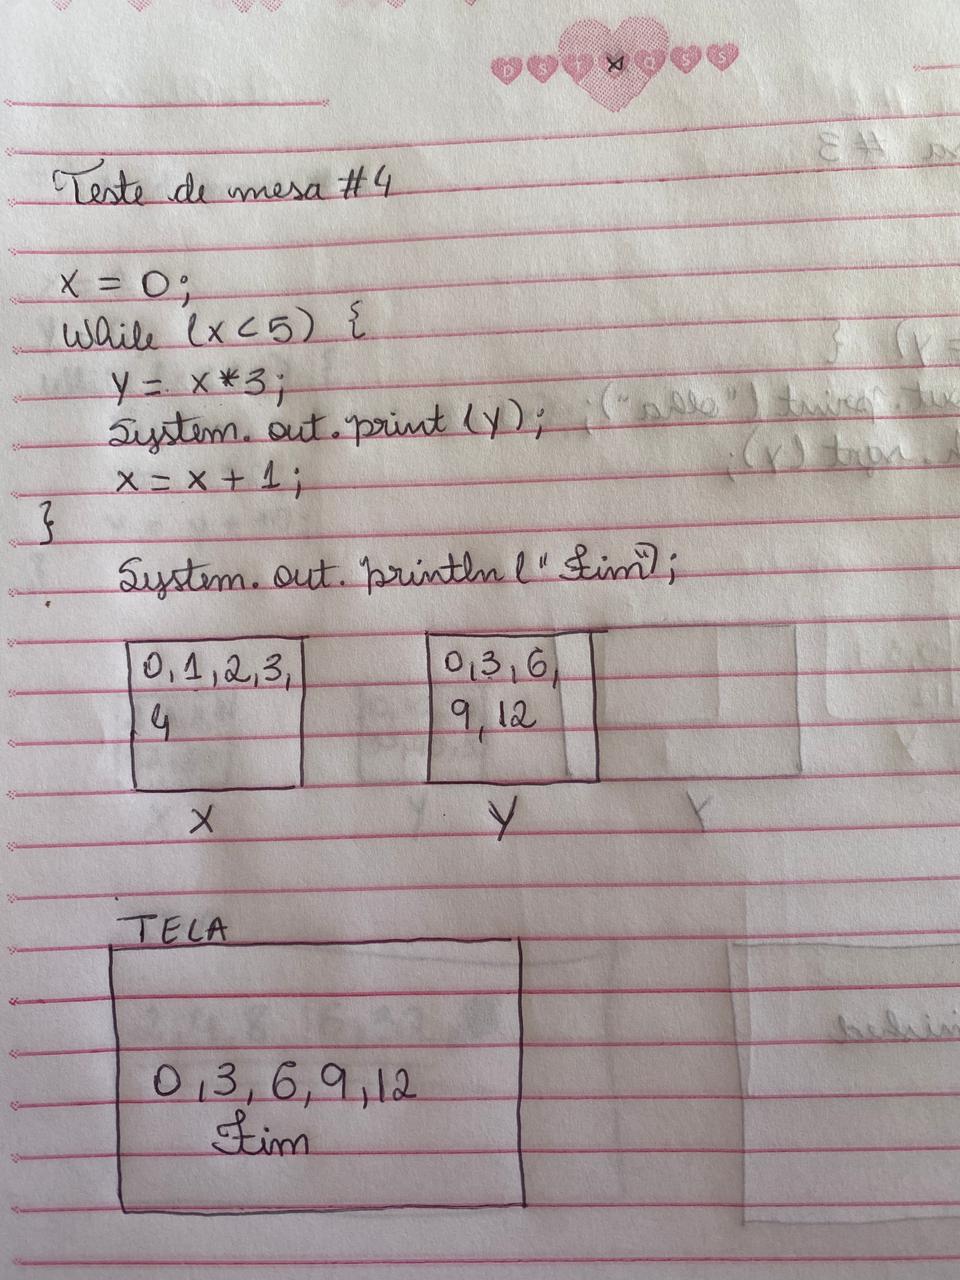 D S T Q Q S S
Teste de mesa #4
x = 0;
while (x < 5) {
y = x * 3;
System.out.print (y);
x = x + 1;
}
System.out.println ("Fim");
0, 1, 2, 3,
4
0, 3, 6,
9, 12
X
Y
TELA
0, 3, 6, 9, 12
Fim